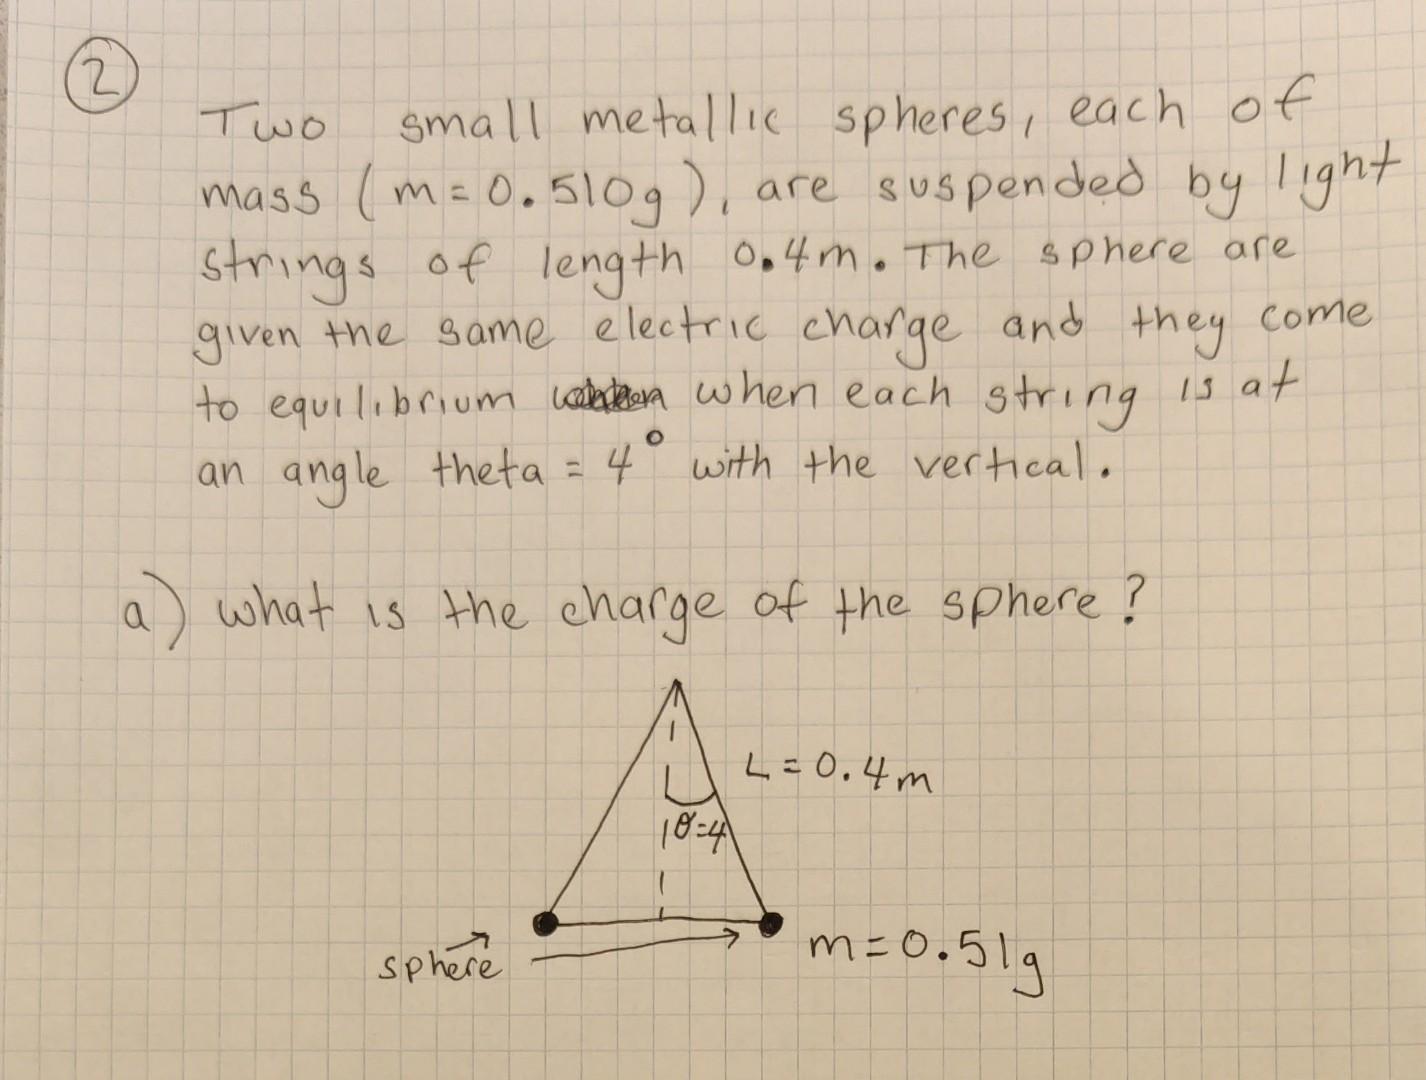 2
Two small metallic spheres, each of
mass (m=0.510g), are suspended by light
strings of length 0.4m. The sphere are
given the same electric charge and they come
to equilibrium when each string is at
an angle theta = 4° with the vertical.
a) what is the charge of the sphere?
L = 0.4m
θ=4
sphere
m=0.51g